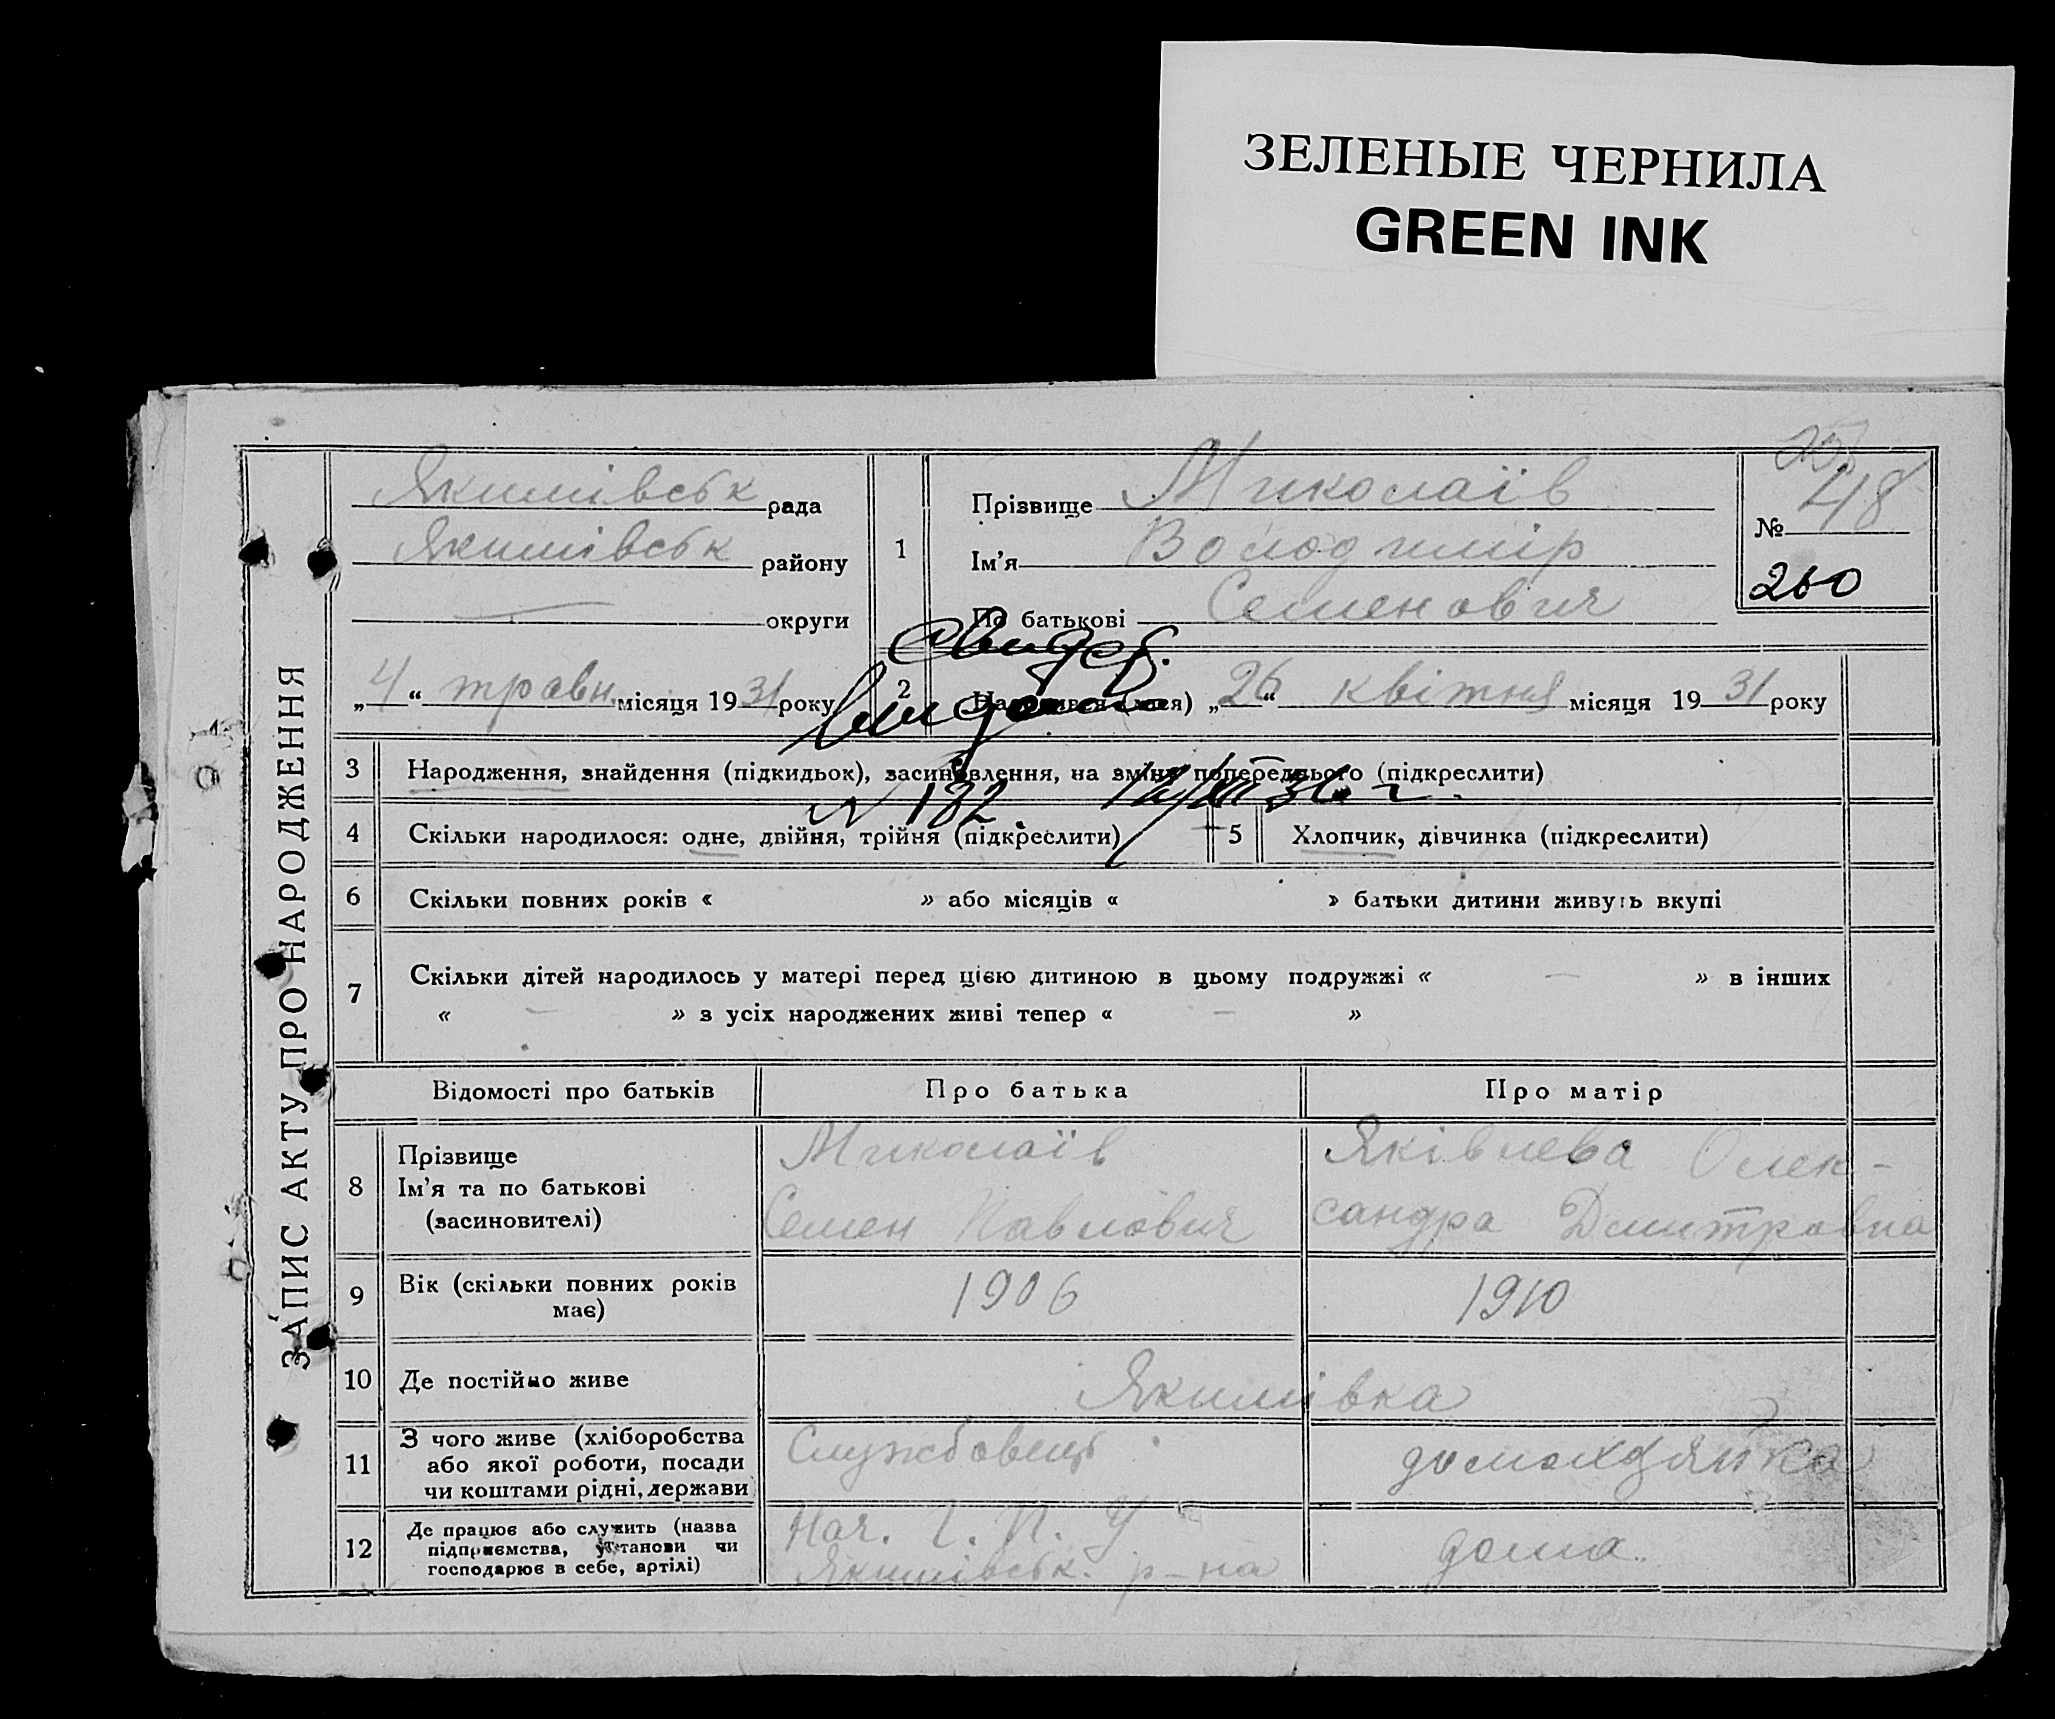 ЗЕЛЕНЫЕ ЧЕРНИЛА
GREEN INK
ЗАПИС АКТУ ПРО НАРОДЖЕННЯ
Якимівськ рада
Якимівськ району
округи
„4“ травн. місяця 1931 року
1
Прізвище Миколаїв
Ім'я Володимір
По батькові Семенович
№ 48
260
2
Народився (лася) „26“ квітня місяця 1931 року
Свидет.
выдано
N 182
3 Народження, знайдення (підкидьок), засиновлення, на зміну попереднього (підкреслити)
4 Скільки народилося: одне, двійня, трійня (підкреслити)
5 Хлопчик, дівчинка (підкреслити)
6 Скільки повних років « » або місяців « » батьки дитини живуть вкупі
7 Скільки дітей народилось у матері перед цією дитиною в цьому подружжі « — » в інших
« — » з усіх народжених живі тепер « — »
Відомості про батьків
Про батька
Про матір
8 Прізвище
Ім'я та по батькові
(засиновителі)
Миколаїв
Семен Павлович
Яківлева Олек-
сандра Дмитровна
9 Вік (скільки повних років
має)
1906
1910
10 Де постійно живе
Якимівка
11 З чого живе (хліборобства
або якої роботи, посади
чи коштами рідні, держави
Службовець
домохозяйка
12 Де працює або служить (назва
підприємства, установи чи
господарює в себе, артілі)
Нач. Г. П. У
Якимівськ. р-на
дома